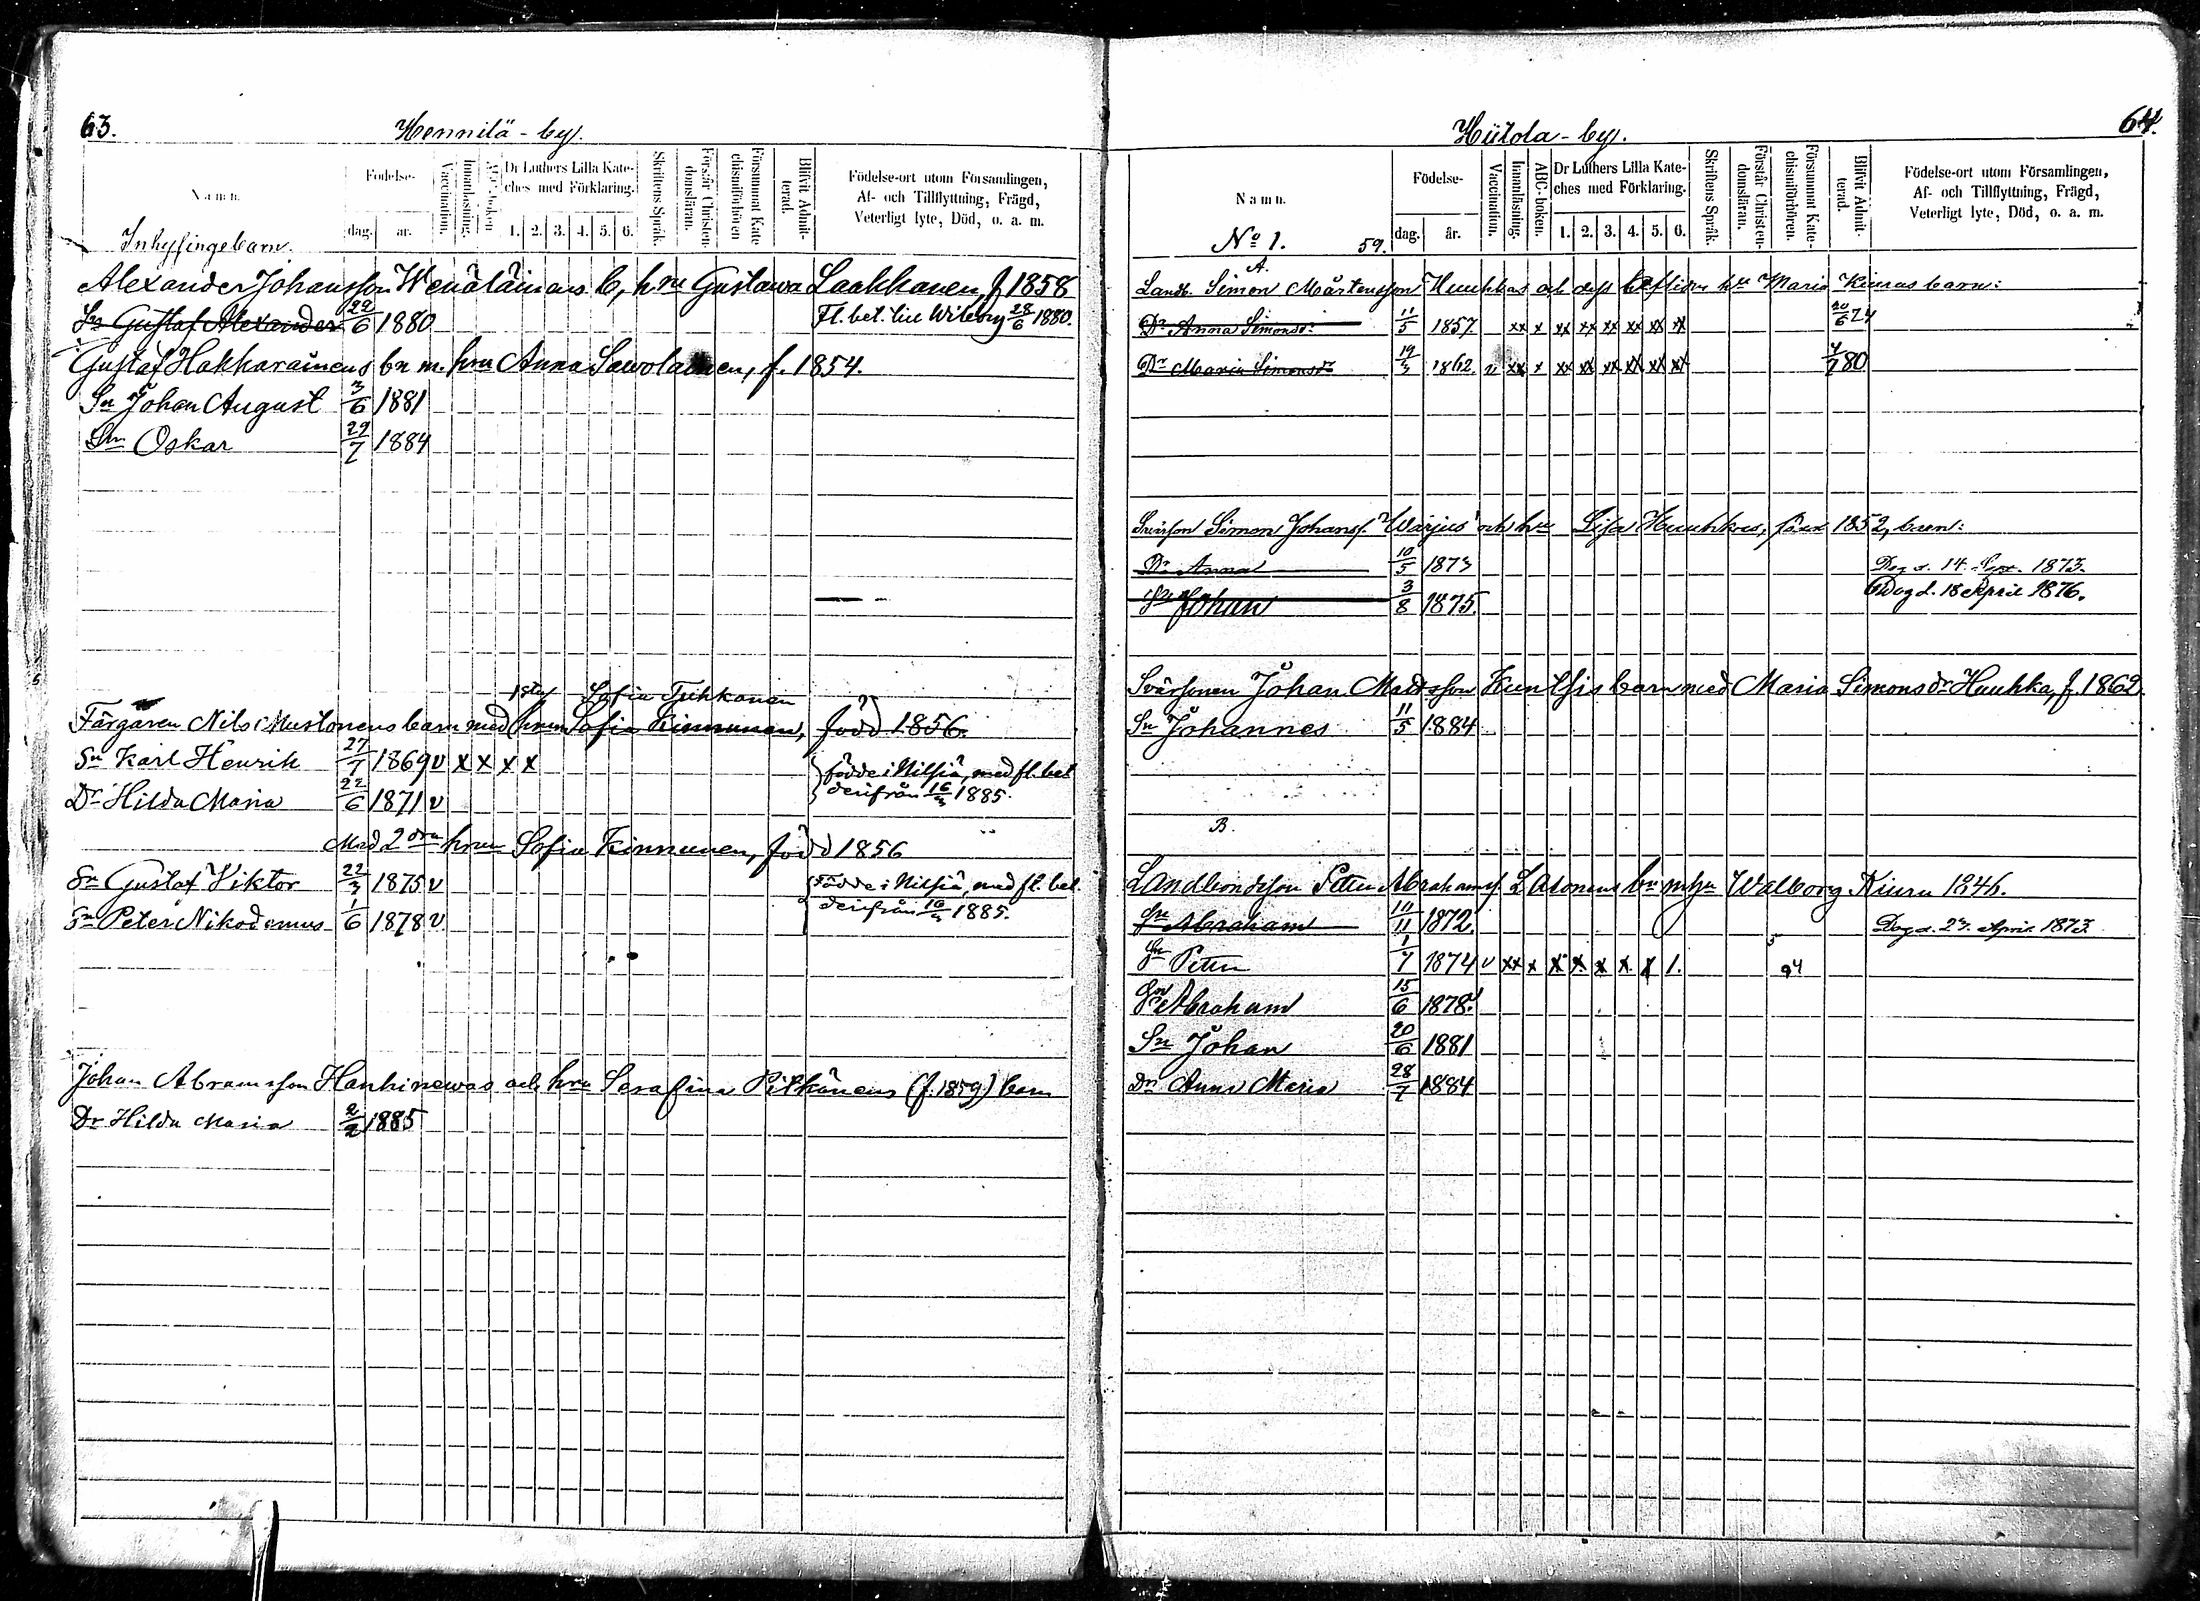 63.
Hennilä - by.
Namn.
Födelse-
dag.
år.
Vaccination.
Innanläsning.
ABC-boken
Dr Luthers Lilla Kate-
ches med Förklaring.
1. 2. 3. 4. 5. 6.
Skriftens Språk.
Förstår Christen-
domsläran.
Försummat Kate
chismiförhören
Blifvit Admit-
terad.
Födelse-ort utom Församlingen,
Af- och Tillflyttning, Frägd,
Veterligt lyte, Död, o. a. m.
Inhysingebarn.
Alexander Johansson Wenäläinens b, hru Gustawa Laakkanen f 1858
Sn Gustaf Alexander 22/6 1880 Fl. bet. till Wiborg 28/6 1880.
Gustaf Hakkarainens bn m. hru Anna Sawolainen, f. 1854.
Sn Johan August 3/6 1881
Sn Oskar 29/7 1884
1sta Sofia Tuhkanen
Färgaren Nils Mustonens barn med hrun Sofia Kinnunen, född 1856.
Sn Karl Henrik 27/7 1869 v x x x x födde i Nilsiä, med fl. bet
Dr Hilda Maria 22/6 1871 v derifrån 16/3 1885.
Med 2dra hrun Sofia Kinnunen, född 1856
Sn Gustaf Viktor 22/3 1875 v Födde i Nilsiä, med fl. bet.
Sn Peter Nikodemus 1/6 1878 v derifrån 16/3 1885.
Johan Abramsson Hankinewas och hru Serafina Pitkänens (f. 1859) barn
Dr Hilda Maria 2/2 1885
64.
Hiitola - by.
Namn.
Födelse-
dag.
år.
Vaccination.
Innanläsning.
ABC-boken.
Dr Luthers Lilla Kate-
ches med Förklaring.
1. 2. 3. 4. 5. 6.
Skriftens Språk.
Förstår Christen-
domsläran.
Försummat Kate-
chismiförhören.
Blifvit Admit-
terad.
Födelse-ort utom Församlingen,
Af- och Tillflyttning, Frägd,
Veterligt lyte, Död, o. a. m.
No 1. 59.
A.
Landb. Simon Mårtensson Huuhkas och dess hru Maria Kiurus barn:
Dr Anna Simonsdr 11/5 1857 xx x xx xx xx xx xx xx 20/6 74
Dr Maria Simonsdr 19/3 1862 v xx x xx xx xx xx xx xx 4/7 80
Svärson Simon Johanss. Warjus och hru Lisa Huuhkas, född 1852, barn:
Dr Anna 10/5 1873 Dog d. 14. Sept. 1873.
Sn Johan 3/8 1875 Dog d. 18 April 1876.
Svärsonen Johan Mattsson Kunthis barn med Maria Simonsdr Huuhka, f. 1862.
Sn Johannes 11/5 1884
B.
Landbondeson Peter Abrahamss. Latonens bn m hru Walborg Kiuru 1846.
Sn Abraham 10/11 1872. Dog d. 23. April 1873.
Sn Peter 1/7 1874 v xx x x x x x x 1. 5 94
Sn Abraham 15/6 1878 v
Sn Johan 20/6 1881
Dr Anna Maria 28/7 1884